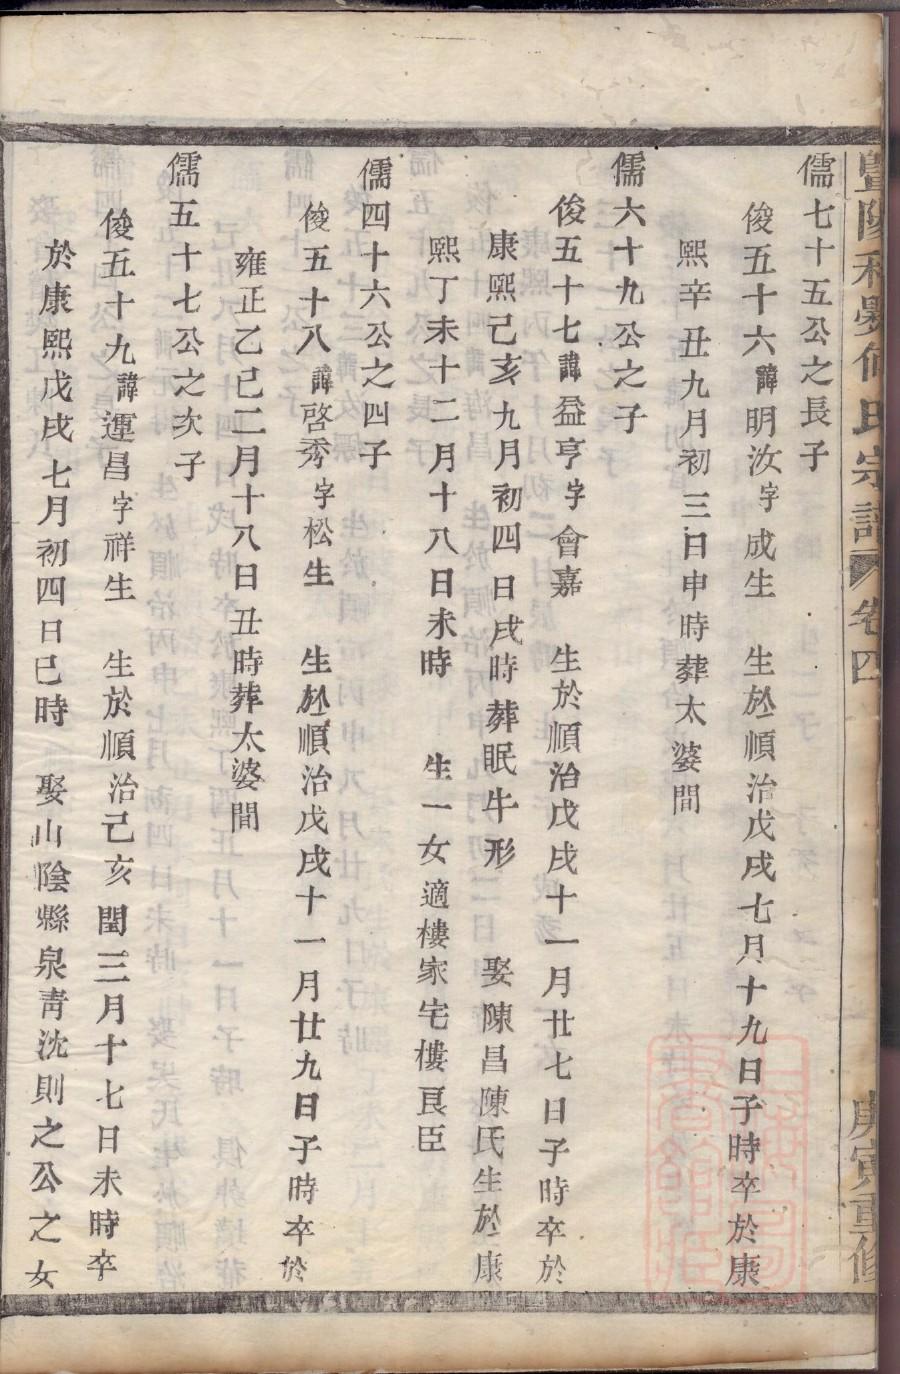 暨陽 何氏宗譜 卷四 庚寅重修
儒七十五公之長子
俊五十六諱明汝字成生 生於順治戊戌七月十九日子時卒於康
熙辛丑九月初三日申時葬太婆間
儒六十九公之子
俊五十七諱益亨字會嘉 生於順治戊戌十一月廿七日子時卒於
康熙己亥九月初四日戌時葬眠牛形 娶陳昌陳氏生於康
熙丁未十二月十八日未時 生一女適樓家宅樓良臣
儒四十六公之四子
俊五十八諱啓秀字松生 生於順治戊戌十一月廿九日子時卒於
雍正乙巳二月十八日丑時葬太婆間
儒五十七公之次子
俊五十九諱運昌字祥生 生於順治己亥閏三月十七日未時卒
於康熙戊戌七月初四日巳時 娶山陰縣泉青沈則之公之女